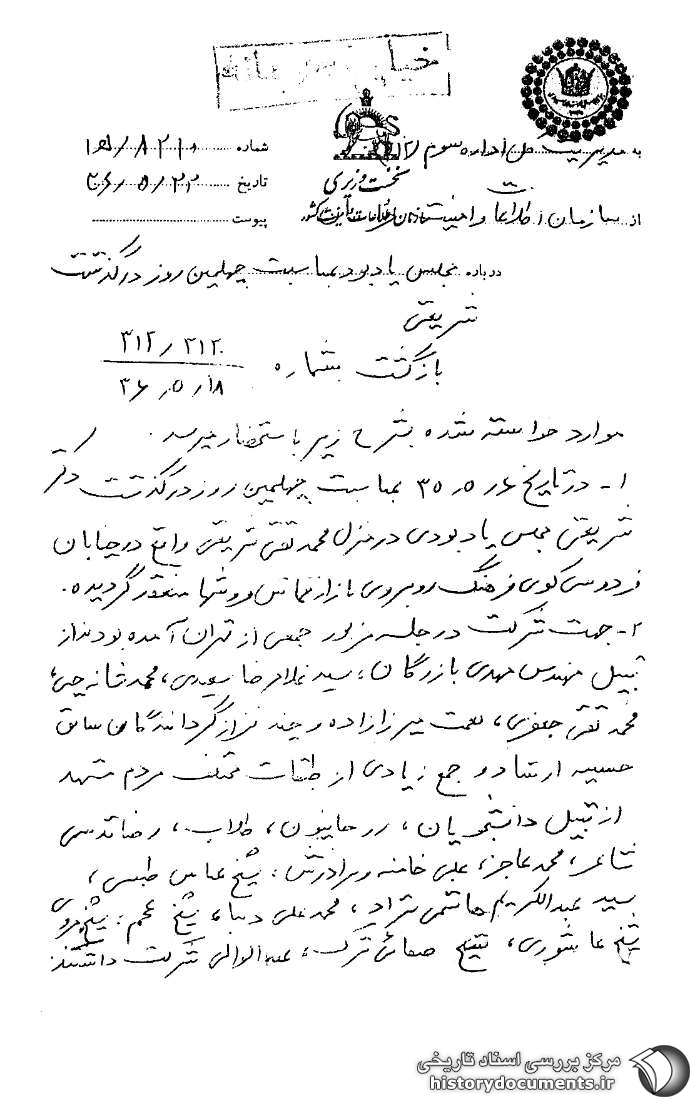 خیلی محرمانه
به مدیریت کل اداره سوم ۳۱۲
شماره ۸۲۱۰/ه۱
نخست وزیری
تاریخ ۳۶/۵/۲۲
از سازمان اطلاعات و امنیت سازمان اطلاعات و امنیت کشور
پیوست
درباره مجلس یادبود بمناسبت چهلمین روز درگذشت
شریعتی
بازگشت بشماره ۳۱۲/۲۱۲۰
۳۶/۵/۱۸
موارد خواسته شده بشرح زیر باستحضار میرسد.
۱- در تاریخ ۳۵/۵/۶ بمناسبت چهلمین روز درگذشت دکتر
شریعتی مجلس یادبودی در منزل محمد تقی شریعتی واقع در خیابان
فردوسی کوی فرهنگ روبروی بازار فروشها منعقد گردیده.
۲- جهت شرکت در جلسه مزبور جمعی از تهران آمده بودند از
قبیل مهندس مهدی بازرگان، سید غلامرضا سعیدی، محمد شانه چی،
محمد تقی جعفری، نعمت میرزازاده و چند نفر از گردانندگان سابق
حسینیه ارشاد و جمع زیادی از طبقات مختلف مردم مشهد
از قبیل دانشجویان، روحانیون، طلاب، رضا قدسی
شاعر، محمد عاجز، علی خامنه و برادرش، شیخ عباس طبسی،
سید عبدالکریم هاشمی نژاد، محمد علی شیخ
شیخ عاشوری، شیخ صفائی ترک، شرکت داشتند
مرکز بررسی اسناد تاریخی
historydocuments.ir